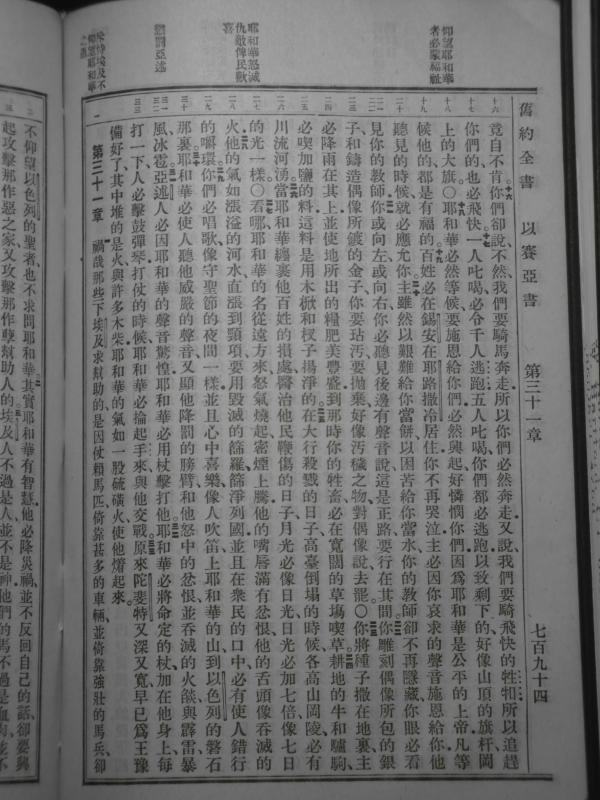 舊約全書 以賽亞書 第三十一章 七百九十四
仰望耶和華
者必蒙福祉
耶和華怒滅
仇敵俾民歡
喜
懲罰亞述
仰望耶和華
竟自不肯你們卻說不然我們要騎馬奔走所以你們必然奔走又說我們要騎飛快的牲所以追趕
你們的也必飛快一人叱喝必令千人逃跑五人叱喝你們都必逃跑以致剩下的好像山頂的旗杆岡
上的大旗〇耶和華必然等候要施恩給你們必然興起好憐憫你們因爲耶和華是公平的上帝凡等
候他的都是有福的百姓必在錫安在耶路撒冷居住你不再哭泣主必因你哀求的聲音施恩給你他
聽見的時候就必應允你主雖然以艱難給你當餅以困苦給你當水你的教師卻不再隱藏你眼必看
見你的教師你或向左或向右你必聽見後邊有聲音說這是正路要行在其間你雕刻偶像所包的銀
子和鑄造偶像所鍍的金子你要玷污要拋棄好像污穢之物對偶像說去罷〇你將種子撒在地裏主
必降雨在其上並使地所出的糧肥美豐盛到那時你的牲畜必在寬闊的草場喫草耕地的牛和驢駒
必喫加鹽的料這料是用木杴和杈子揚淨的在大行殺戮的日子高臺倒塌的時候各高山岡陵必有
川流河湧當耶和華纏裹他百姓的損處醫治他民鞭傷的日子月光必像日光日光必加七倍像七日
的光一樣〇看哪耶和華的名從遠方來怒氣燒起密煙上騰他的嘴唇滿有忿恨他的舌頭像吞滅的
火他的氣如漲溢的河水直漲到頸項要用毀滅的篩羅篩淨列國並且在衆民的口中必有使人錯行
的嚼環你們必唱歌像守聖節的夜間一樣並且心中喜樂像人吹笛上耶和華的山到以色列的磐石
那裏耶和華必使人聽他威嚴的聲音又顯他降罰的膀臂和他怒中的忿恨並吞滅的火燄與霹雷暴
風冰雹亞述人必因耶和華的聲音驚惶耶和華必用杖擊打他耶和華必將命定的杖加在他身上每
打一下人必擊鼓彈琴打仗的時候耶和華必掄起手來與他交戰原來陀斐特又深又寬早已爲王豫
備好了其中堆的是火與許多木柴耶和華的氣如一股硫磺火使他𤏐起來
第三十一章 禍哉那些下埃及求幫助的是因仗賴馬匹倚靠甚多的車輛並倚靠強壯的馬兵卻
不仰望以色列的聖者也不求問耶和華其實耶和華有智慧他必降災禍並不反回自己的話卻要興
起攻擊那作惡之家又攻擊那作孽幫助人的埃及人不過是人並不是神他們的馬不過是血肉並不